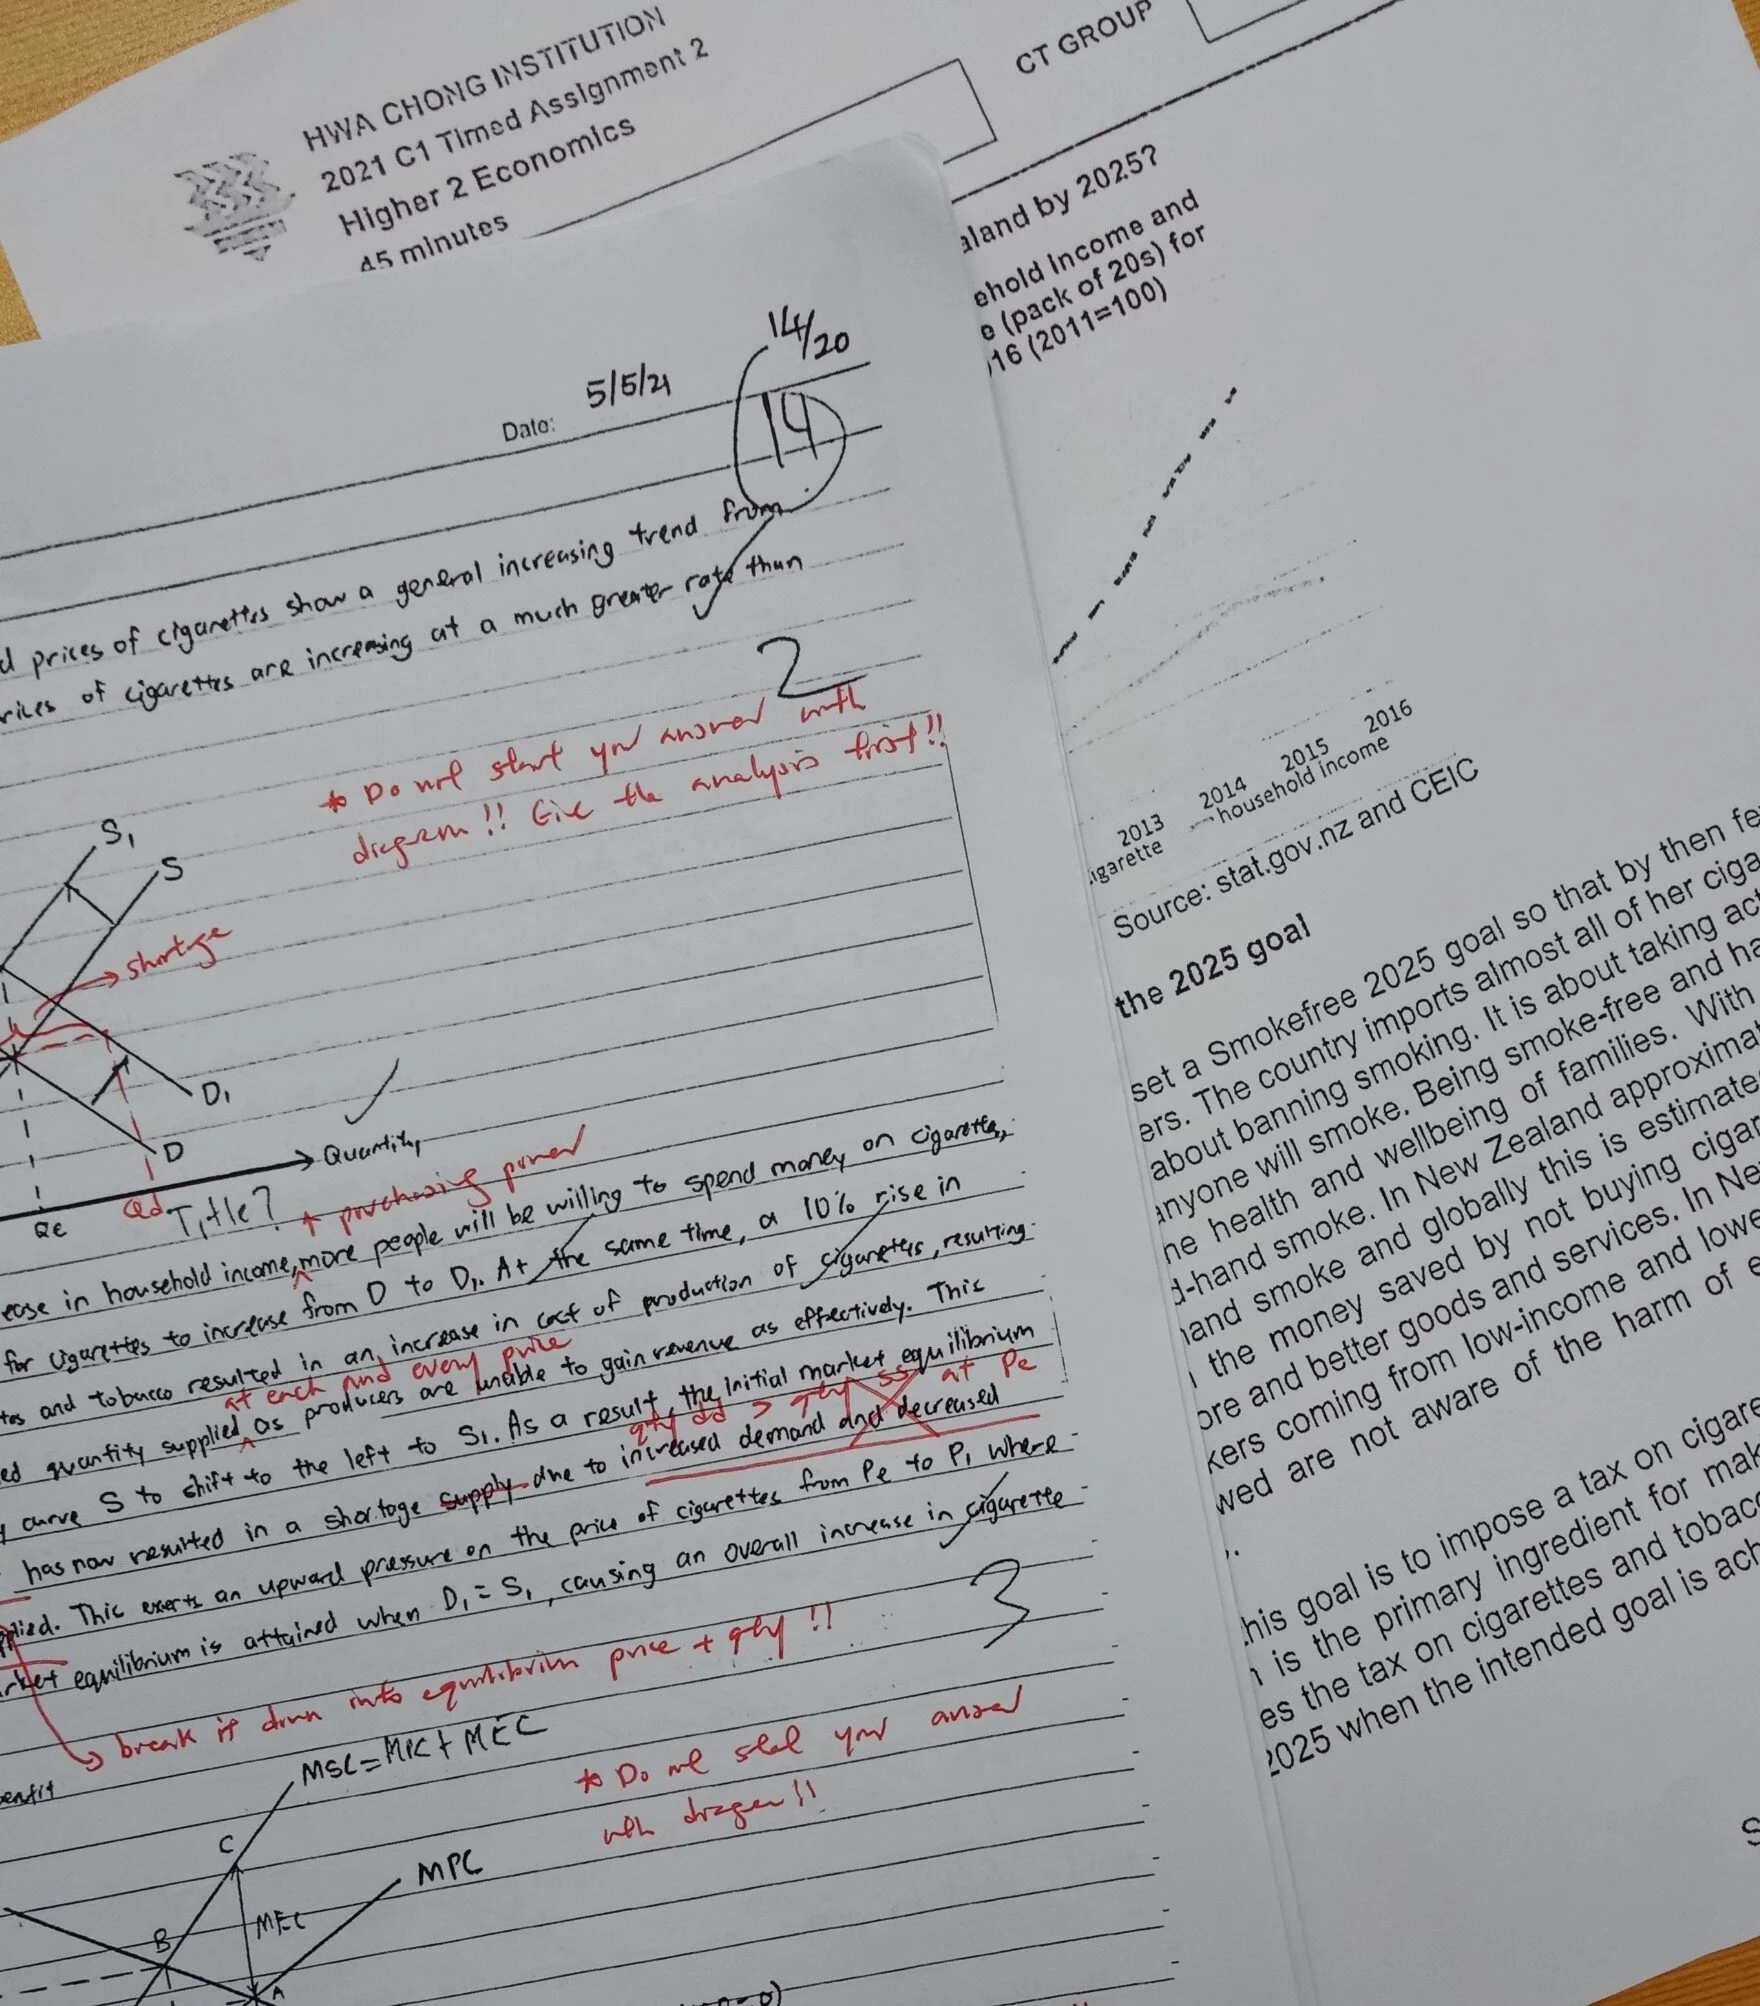 HWA CHONG INSTITUTION
2021 C1 Timed Assignment 2
Higher 2 Economics
45 minutes
CT GROUP
aland by 2025?
ehold Income and
e (pack of 20s) for
16 (2011=100)
2013
2014
2015
2016
igarette
household income
Source: stat.gov.nz and CEIC
the 2025 goal
set a Smokefree 2025 goal so that by then fe
ers. The country imports almost all of her ciga
about banning smoking. It is about taking act
anyone will smoke. Being smoke-free and ha
he health and wellbeing of families. With
d-hand smoke. In New Zealand approxima
hand smoke and globally this is estimate
the money saved by not buying cigar
ore and better goods and services. In Ne
kers coming from low-income and lowe
wed are not aware of the harm of e
his goal is to impose a tax on cigare
is the primary ingredient for mak
es the tax on cigarettes and tobacc
2025 when the intended goal is ach
14/20
Date: 5/5/21
14
d prices of cigarettes show a general increasing trend from
rices of cigarettes are increasing at a much greater rate than
2
* Do not start your answer with
diagram!! Give the analysis first!!
S1
S
shortage
D1
D
Quantity
Qe
Qd
Title?
↑ purchasing power
ease in household income, more people will be willing to spend money on cigarettes,
for cigarettes to increase from D to D1. At the same time, a 10% rise in
tes and tobacco resulted in an increase in cost of production of cigarettes, resulting
at each and every price
ed quantity supplied as producers are unable to gain revenue as effectively. This
y curve S to shift to the left to S1. As a result, the initial market equilibrium
qty dd > qty ss at Pe
has now resulted in a shortage supply due to increased demand and decreased
plied. This exerts an upward pressure on the price of cigarettes from Pe to P1 where
rket equilibrium is attained when D1 = S1, causing an overall increase in cigarette
3
break it down into equilibrium price + qty!!
enefit
MSC=MPC+MEC
* Do not start your answer
with diagram!!
C
MPC
MEC
B
A